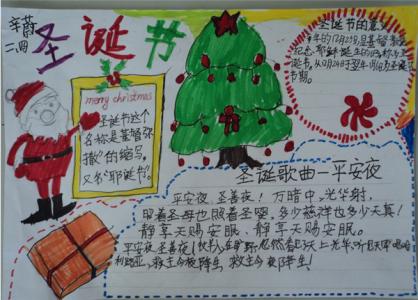 辛蔚
二.四
圣诞节
merry christmas
圣诞节这个
名称是基督弥
撒的缩写,
又名"耶诞节"。
圣诞节的意义
年的12月25日,是基督教
纪念耶稣诞生的
诞节,从12月24日于翌年1月6日为圣诞
节期。
圣诞歌曲—平安夜
平安夜,圣善夜!万暗中,光华射,
照着圣母也照着圣婴,多少慈祥也多少天真!
静享天赐安眠,静享天赐安眠。
平安夜,圣善夜!牧羊人,在旷野,忽然看见天上光华,听见天军唱哈
利路亚,救主今夜降生,救主今夜降生!